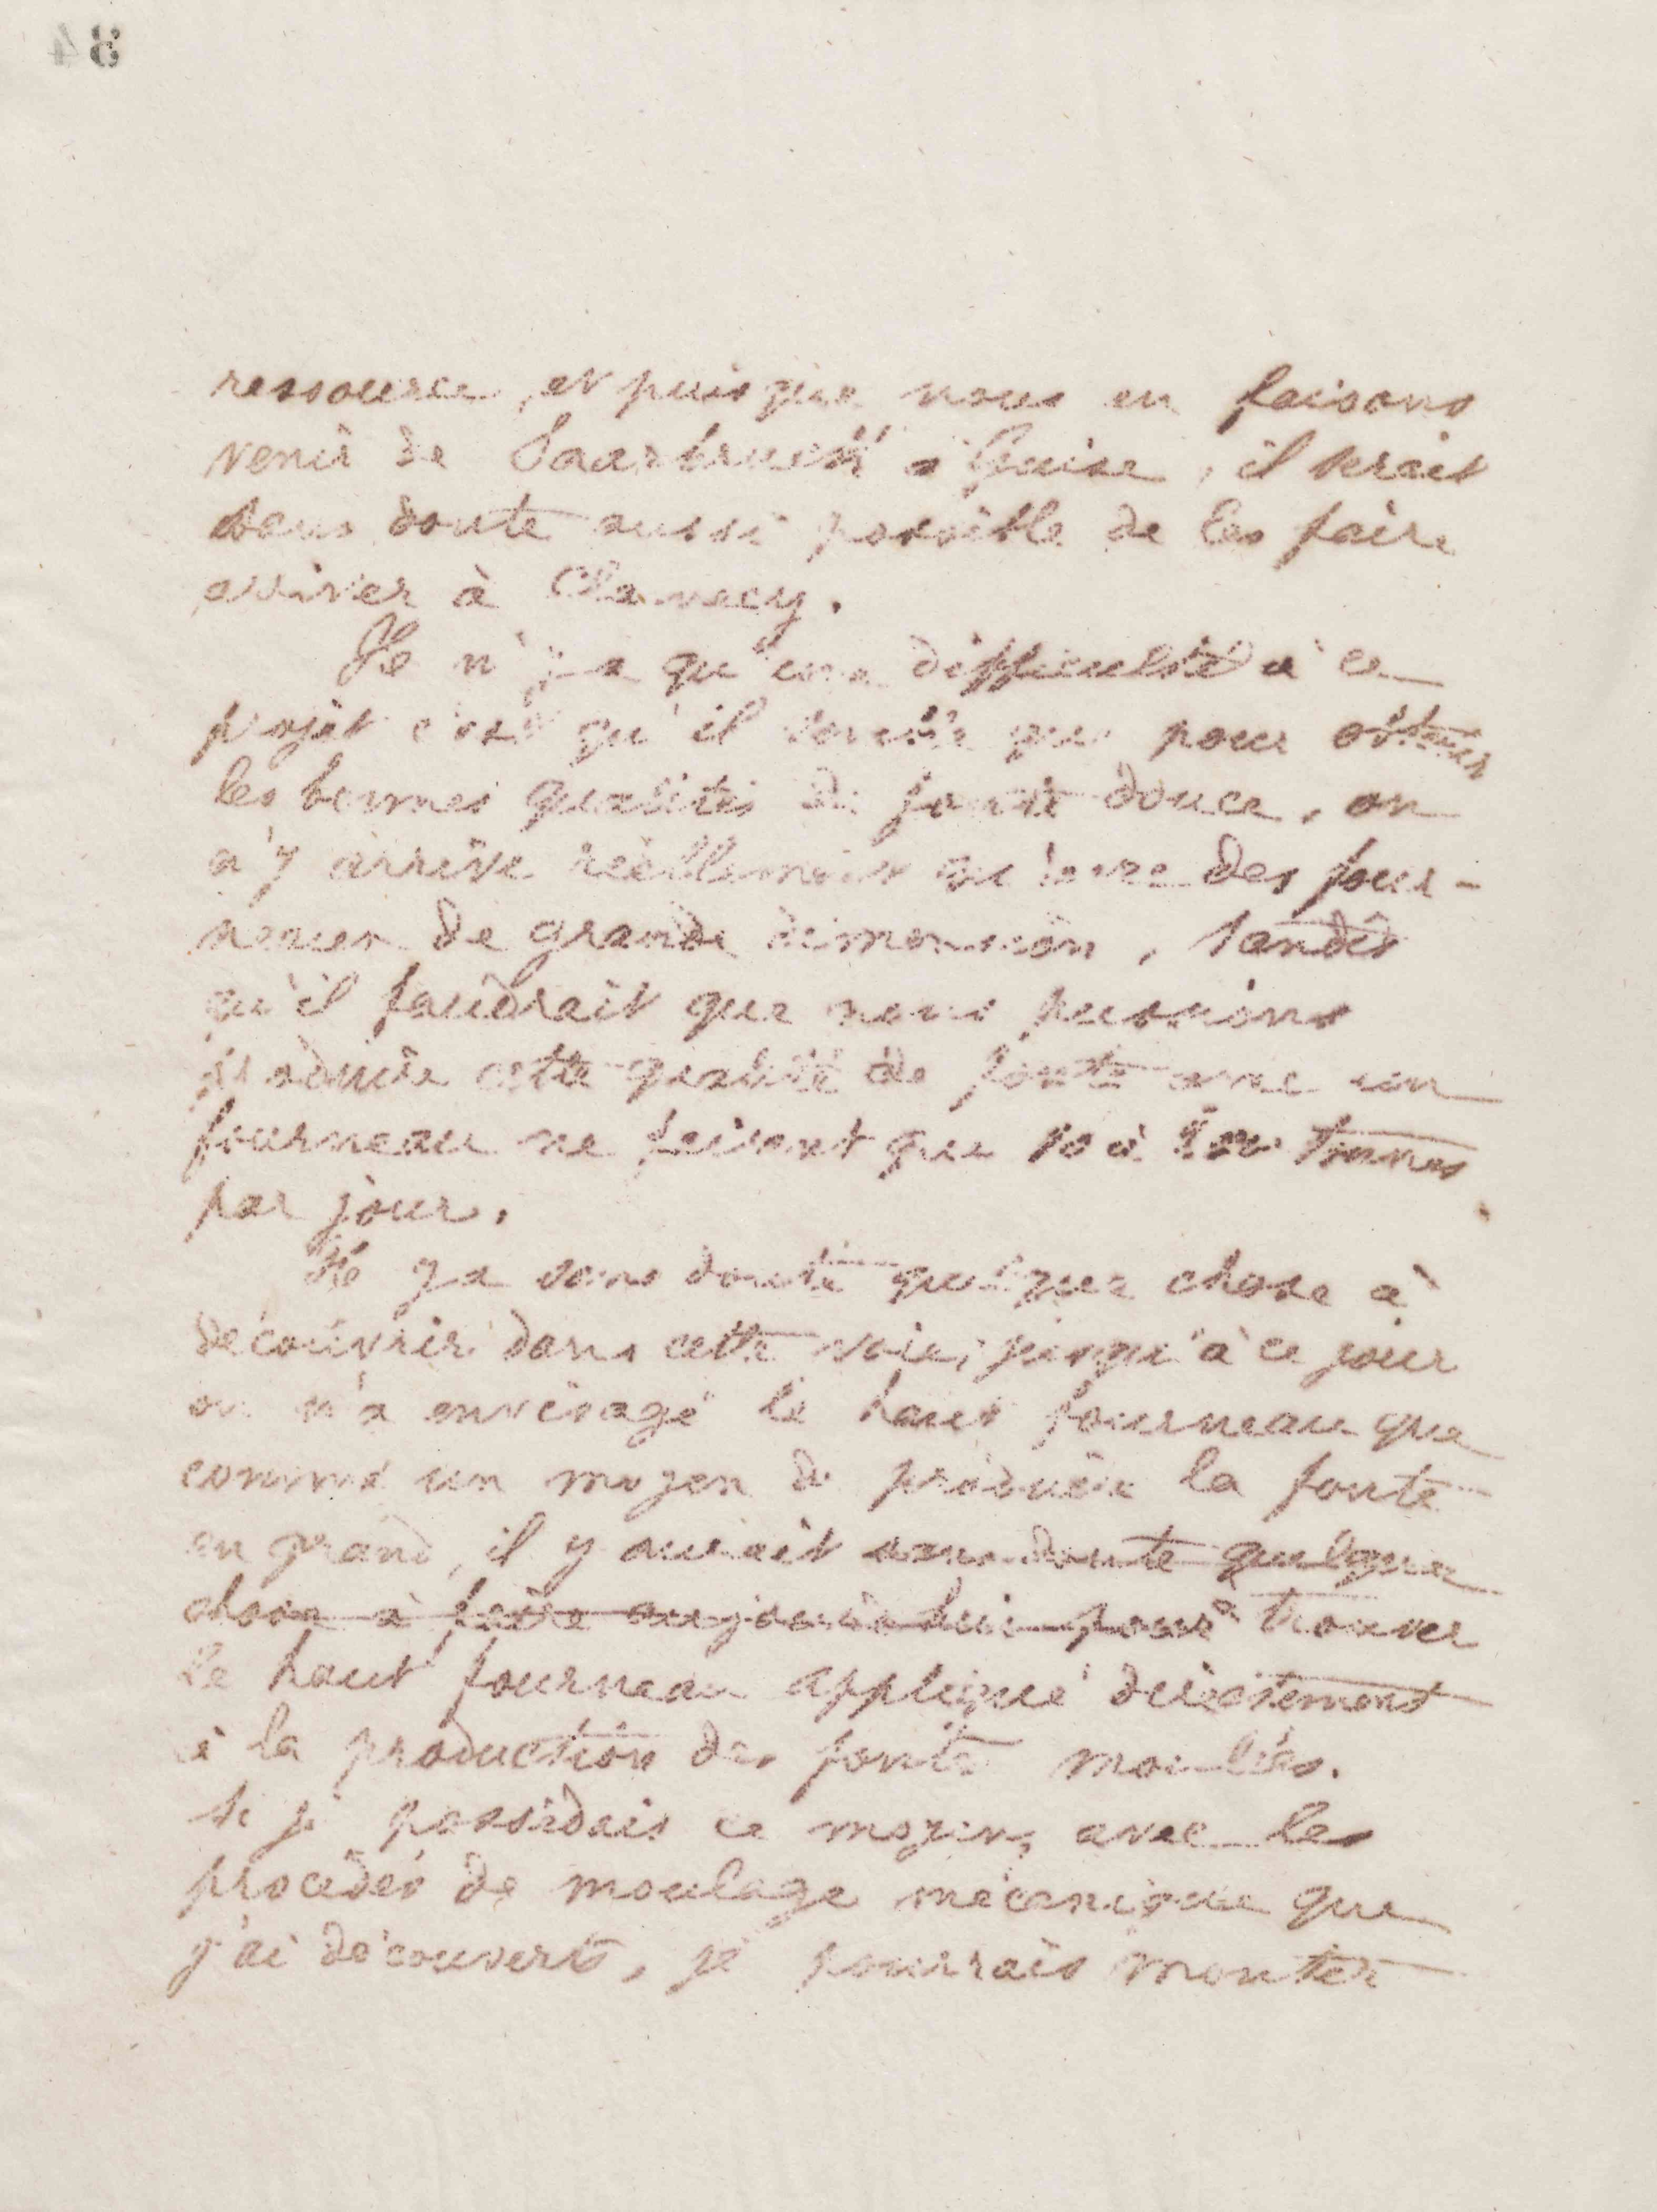 84
ressource, et puisque nous en faisons
venir de Saarbruck à Guise, il serait
sans doute aussi possible de les faire
arriver à Clamecy.
Il n'y a qu'une difficulté à ce
projet c'est qu'il semble que pour obtenir
les bonnes qualités de fonte douce, on
n'y arrive réellement qu'avec des four-
neaux de grande dimension, tandis
qu'il faudrait que nous puissions
produire cette qualité de fonte avec un
fourneau ne faisant que 10 à tonnes
par jour.
Il y a sans doute quelque chose à
découvrir dans cette voie, jusqu'à ce jour
on n'a envisagé le haut fourneau que
comme un moyen de produire la fonte
en grand, il y aurait sans doute quelque
chose à faire aujourd'hui pour à trouver
le haut fourneau appliqué directement
à la production des fontes moulées.
Si je possédais ce moyen, avec les
procédés de moulage mécanique que
j'ai découverts, je pourrais monter